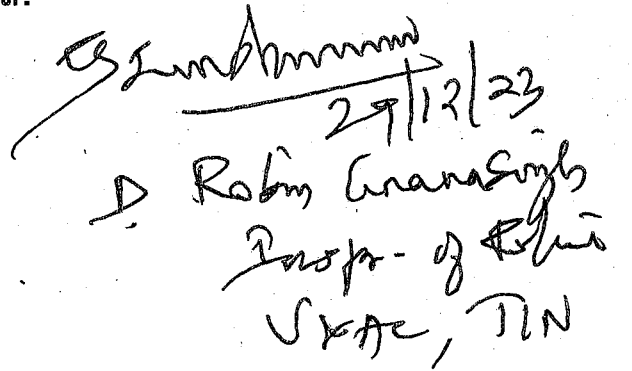 29/12/23
D. Robin Gnanasingh
Inspr. of Police
V&AC, TLN